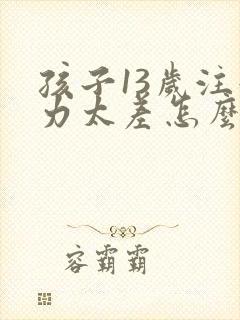 孩子13歲注
力太差怎麼
容霸霸